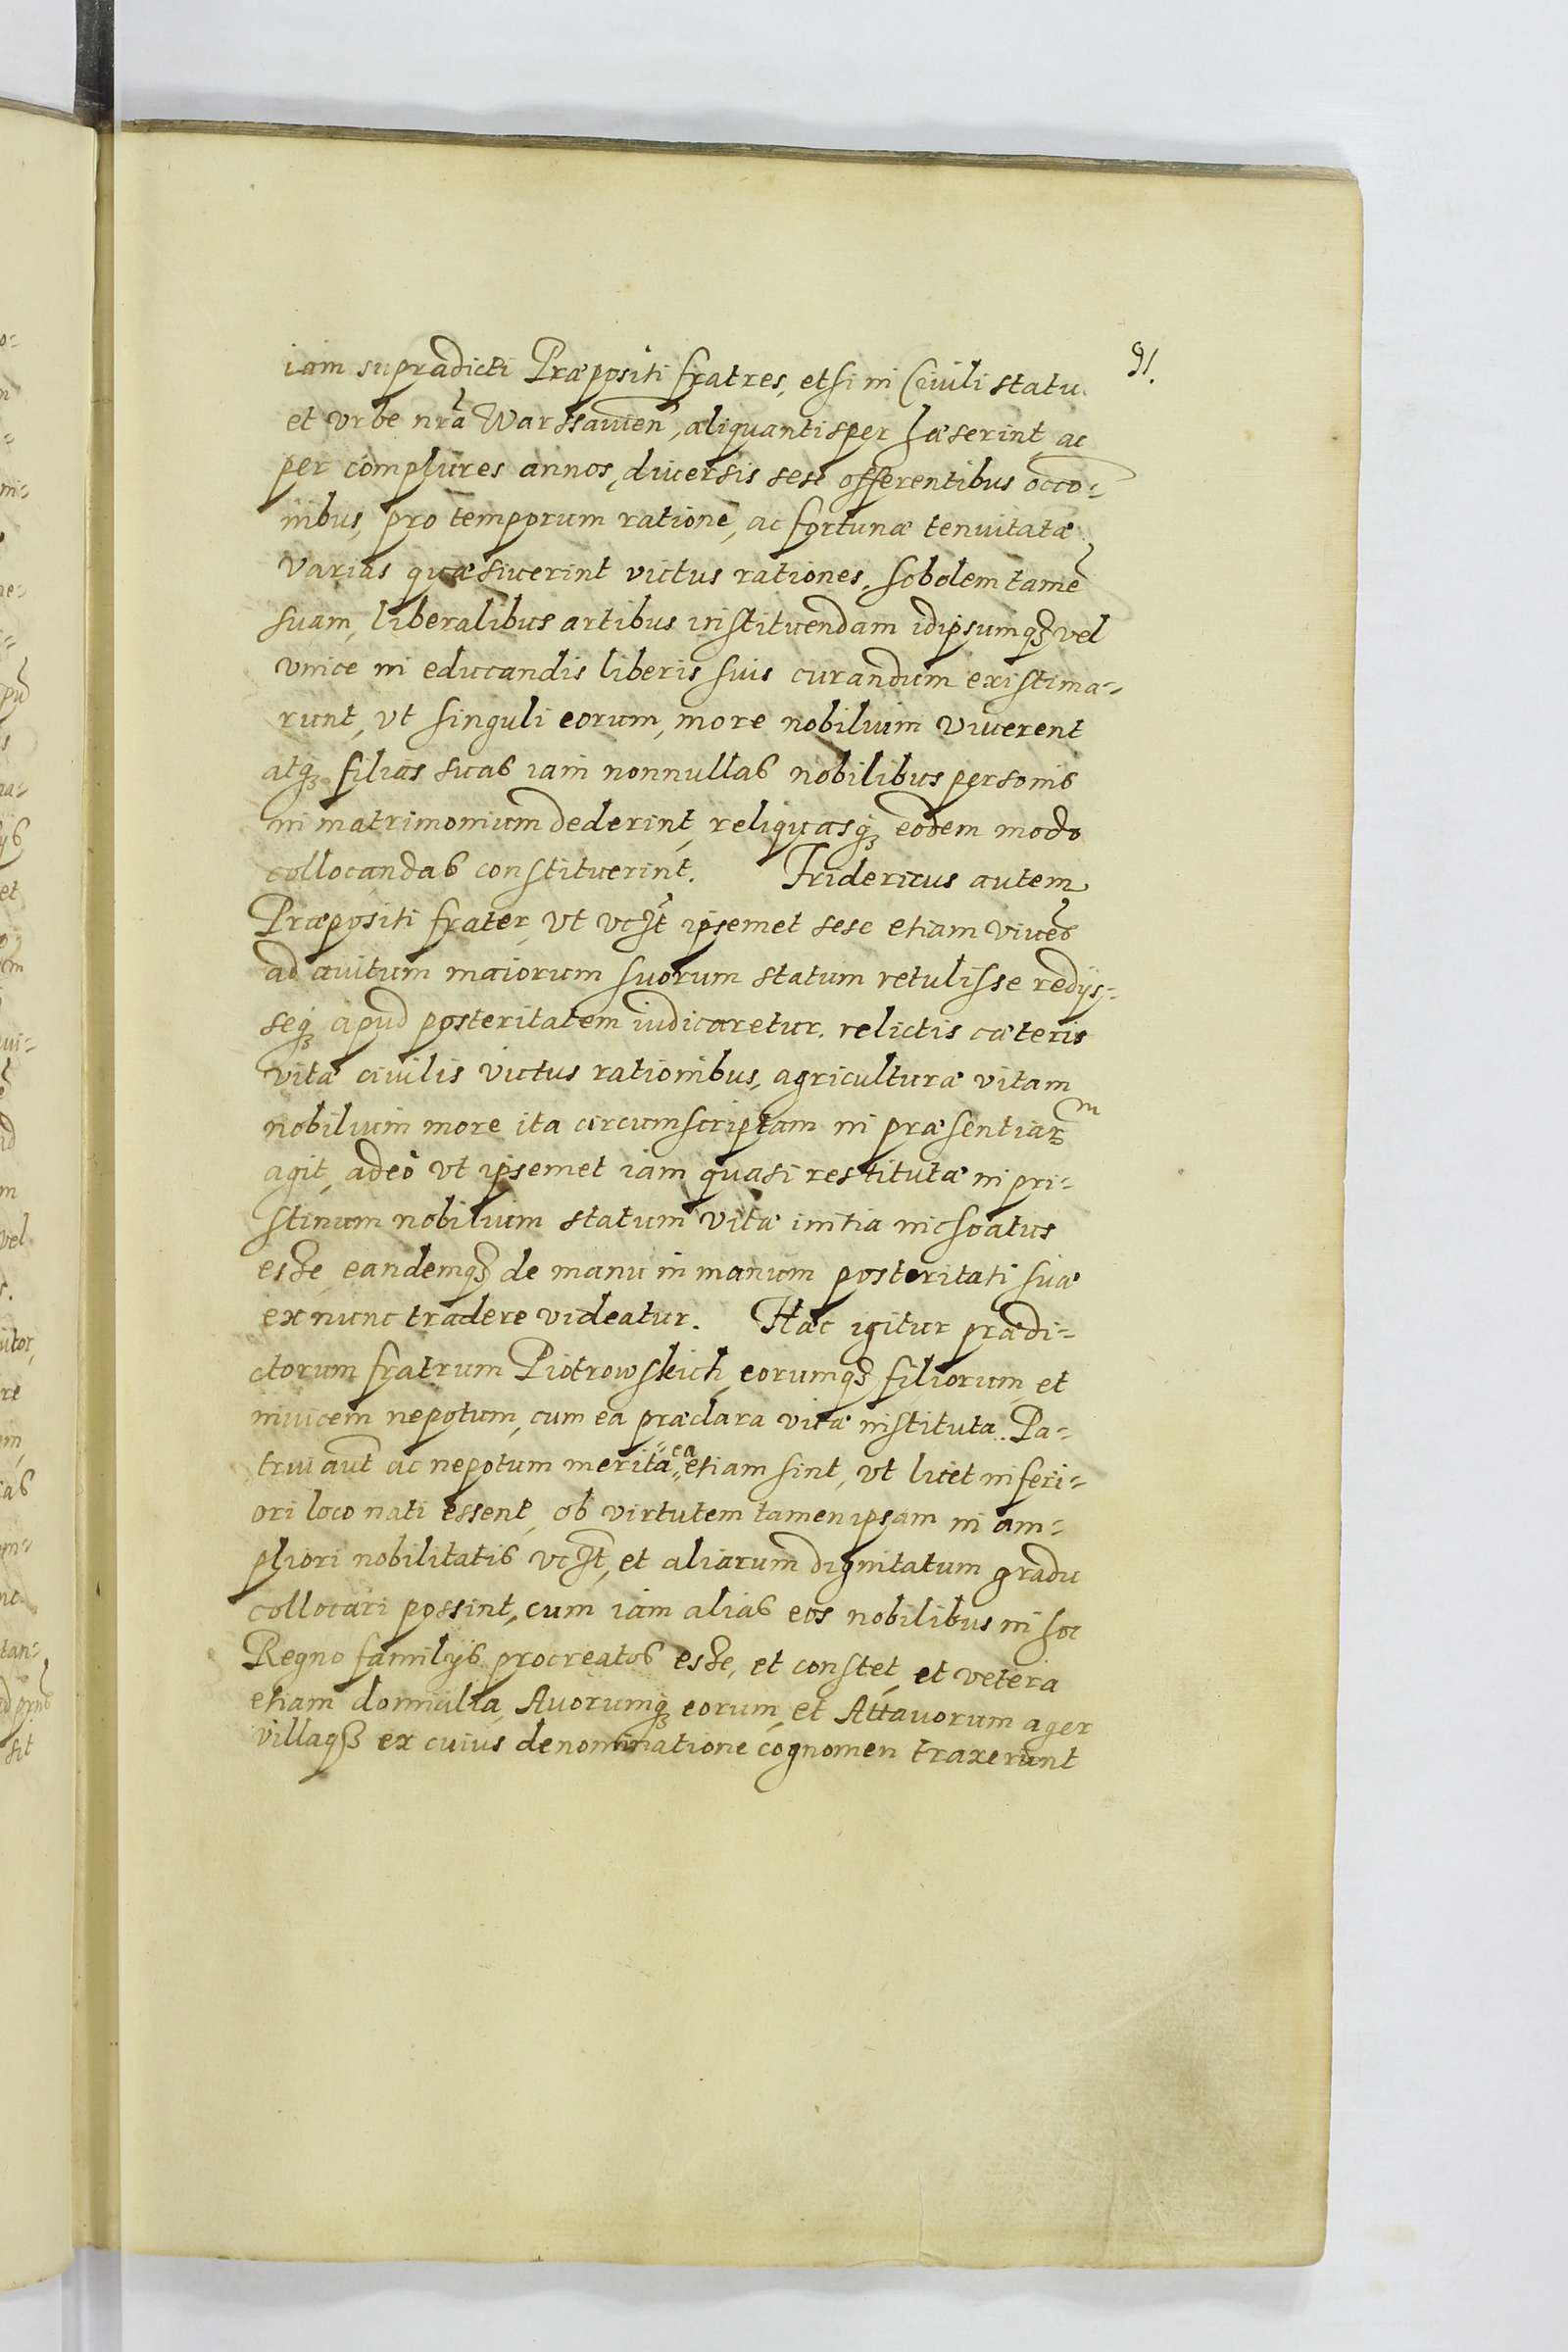 91.
iam supradicti Præpositi fratres, etsi in Ciuili statu
et vrbe nrã Warssauien̄, aliquantisper hæserint, ac
per complures annos, diuersis sese offerentibus occo-
nibus, pro temporum ratione, ac fortunæ tenuitatæ
varias quæsiuerint victus rationes, sobolem tamẽ
suam, liberalibus artibus instituendam idipsumqȝ vel
vnice in educandis liberis suis curandum existima-
runt, vt singuli eorum, more nobilium viuerent
atqȝ filias suas iam nonnullas nobilibus personis
in matrimonium dederint, reliquasqȝ eodem modo
collocandas constituerint. Fridericus autem
Præpositi frater, vt ipsemet sese etiam viuẽs
ad auitum maiorum suorum statum retulisse redijs-
seqȝ apud posteritatem iudicaretur. relictis cæteris
vitæ ciuilis victus rationibus, agriculturæ vitam
nobilium more ita circumscriptam in præsentiarm
agit, adeò vt ipsemet iam quasi restitutæ in pri-
stinum nobilium statum vitæ initia inchoatus
esse, eandemqȝ de manu in manum posteritati suæ
ex nunc tradere videatur. Hæc igitur prædi-
ctorum fratrum Piotrowskich, eorumqȝ filiorum et
inuicem nepotum, cum ea præclara vitæ instituta. Pa-
trui aut̃ ac nepotum merita ea etiam sint, vt licet inferi-
ori loco nati essent, ob virtutem tamen ipsam in am-
pliori nobilitatis et aliarum dignitatum gradu
collocari possint, cum iam alias eos nobilibus in hoc
Regno familijs procreatos esse, et constet, et vetera
etiam domicilia, Auorumqȝ eorum, et Attauorum ager
villaqȝ ex cuius denominatione cognomen traxerunt